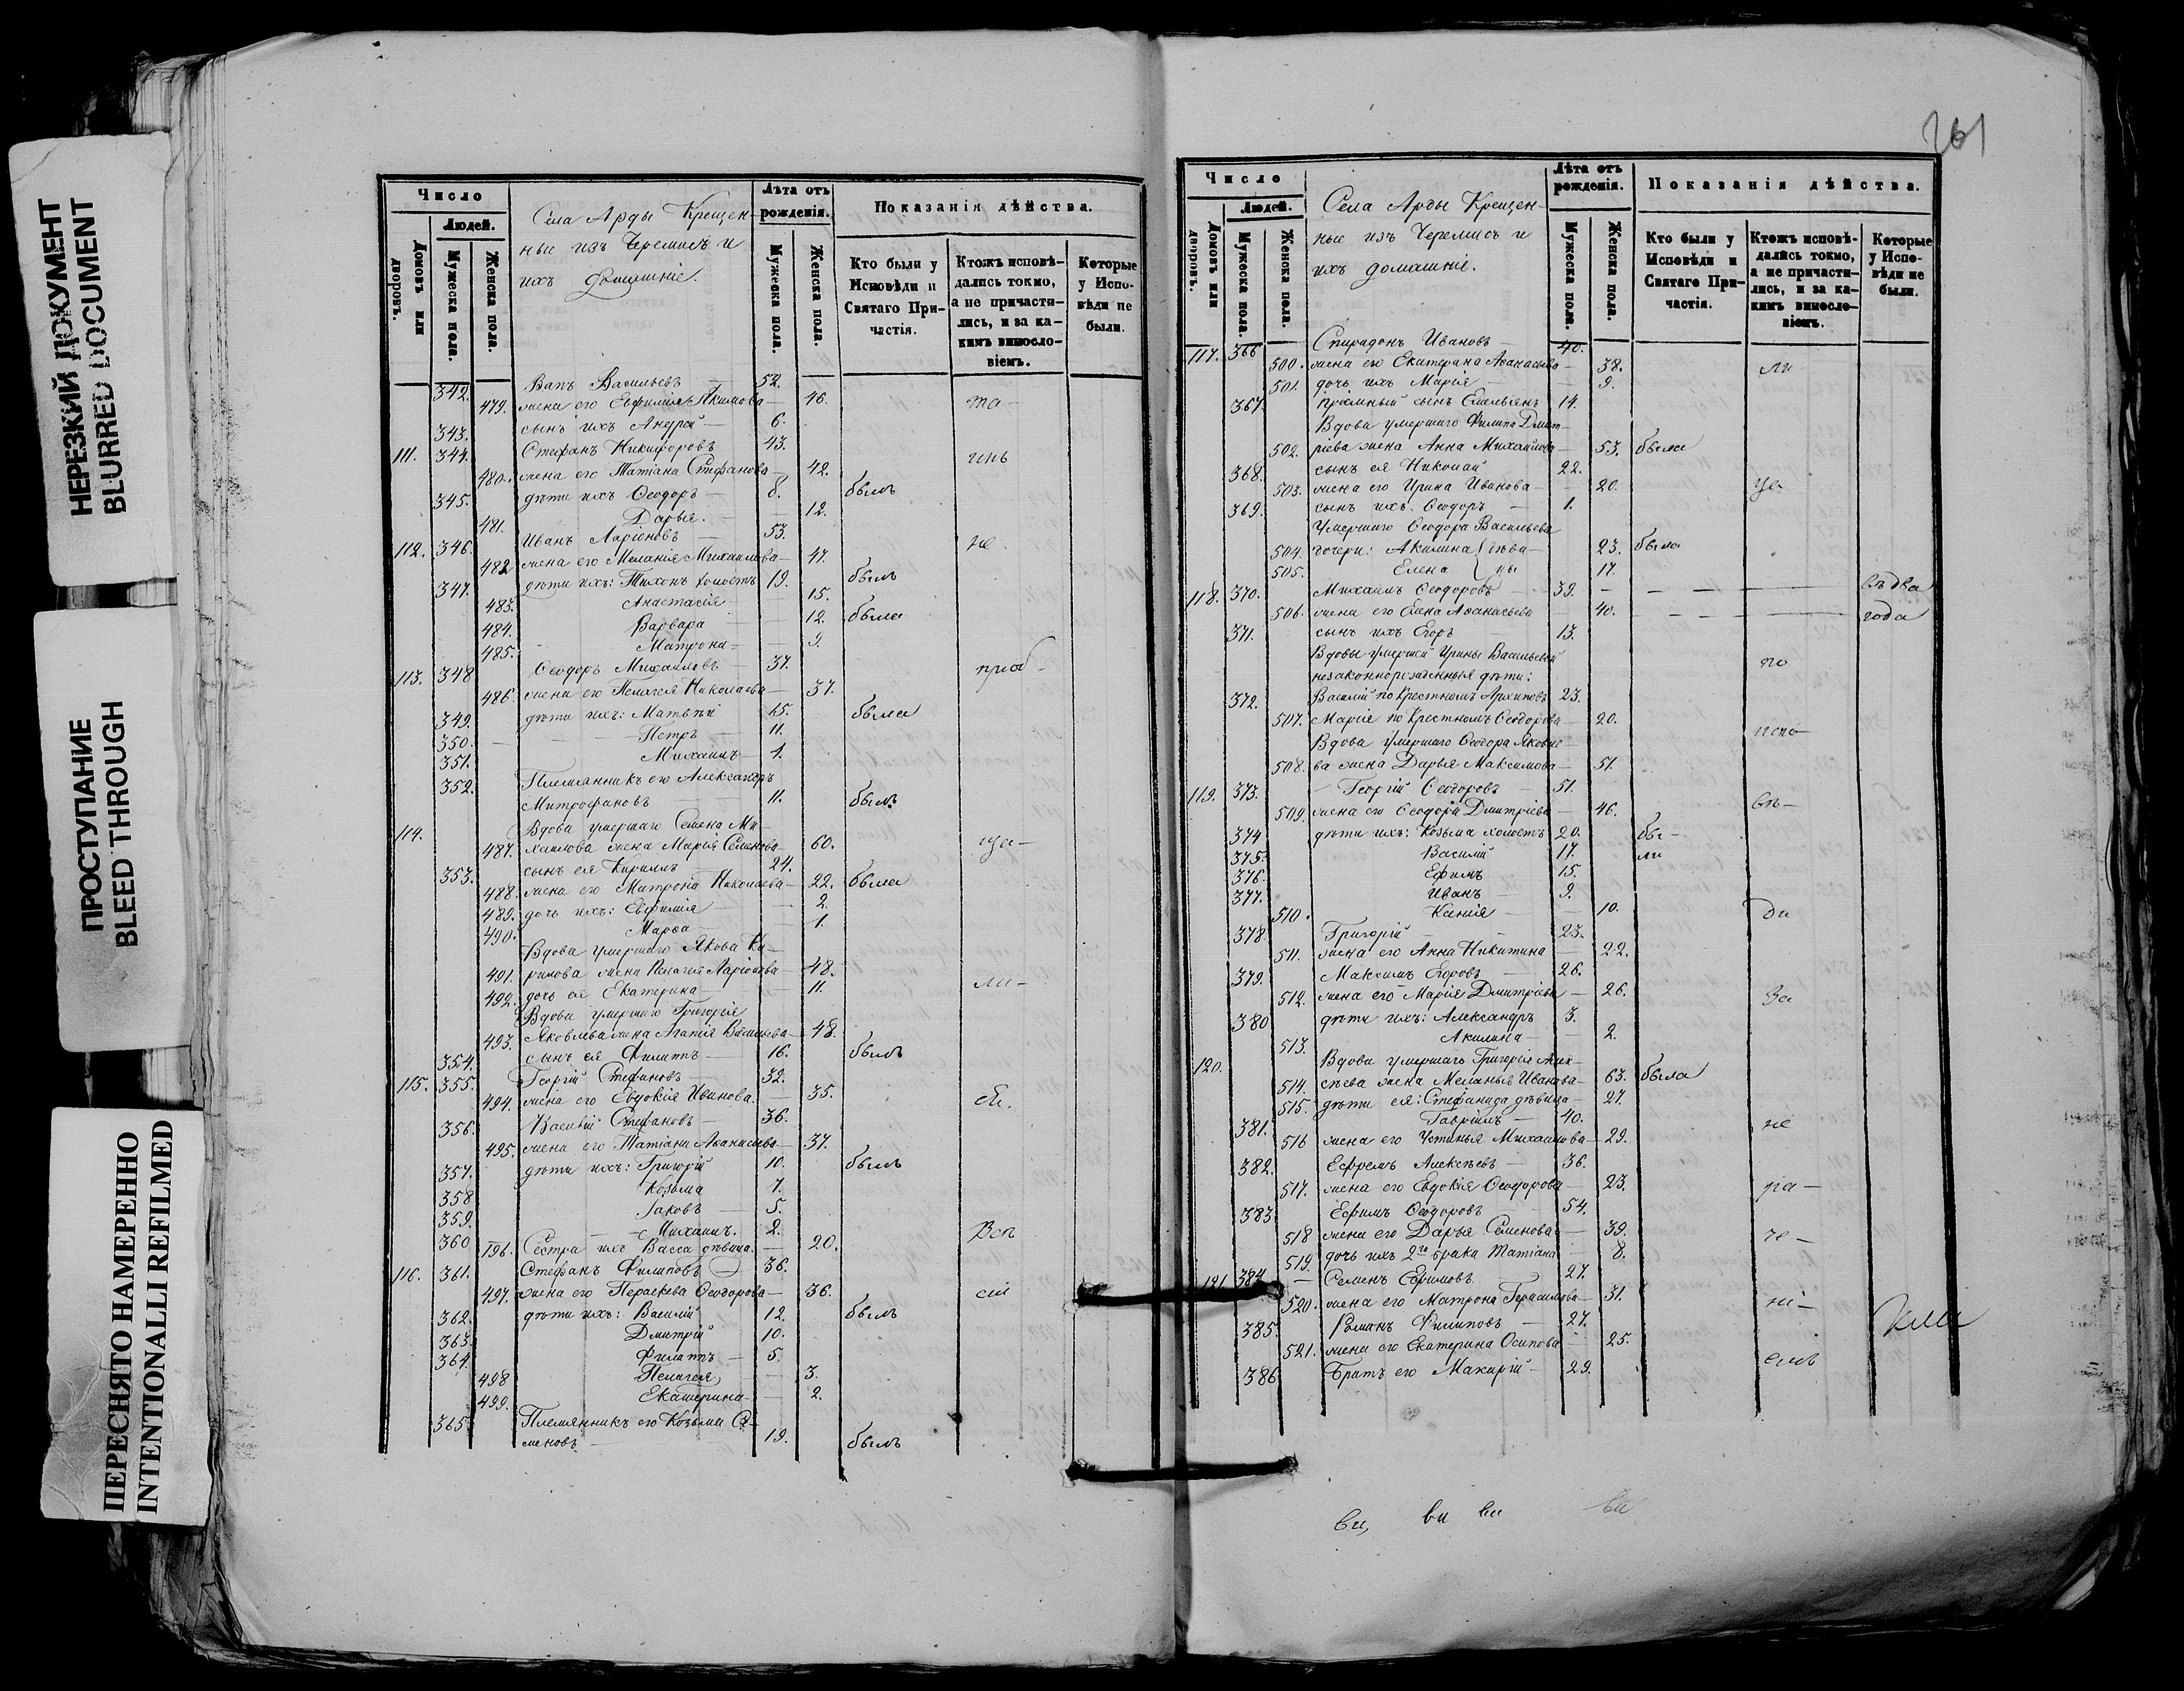 НЕРЕЗКИЙ ДОКУМЕНТ
BLURRED DOCUMENT
ПРОСТУПАНИЕ
BLEED THROUGH
ПЕРЕСНЯТО НАМЕРЕННО
INTENTIONALLI REFILMED
Число
Людей.
Домовъ или дворовъ.
Мужеска пола.
Женска пола.
Села Арды Крещен-
ные изъ Черемисъ и
ихъ домашніе.
Лѣта отъ рожденія.
Мужеска пола.
Женска пола.
Показанія дѣйства.
Кто были у Исповѣди и Святаго Причастія.
Ктожъ исповѣдались токмо, а не причастились, и за какимъ винословіемъ.
Которые у Исповѣди не были.
342. Васильевъ 52.
479. жена его Евфимія Якимова 46. та-
343. сынъ ихъ Андрей 6.
111. 344. Стефанъ Никифоровъ 43. инъ
480. жена его Татіана Стефанова 42.
345. дѣти ихъ Ѳеодоръ 8. былъ
481. Дарья. 12.
112. 346. Иванъ Ларіоновъ 53. не
482 жена его Меланія Михаилова 47.
347. дѣти ихъ: Тихонъ холостъ 19. былъ
483. Анастасія 15.
484. Варвара 12. была
485. Матрона 9.
113. 348 Ѳеодоръ Михаиловъ 37.
486. жена его Пелагея Николаева 37.
349. дѣти ихъ: Матвѣй 15. была
350. Петръ 11.
351. Михаилъ 1.
352. Племянникъ его Александръ
Митрофановъ 11. былъ
114. Вдова умершаго Семена Ми-
487. хаилова жена Марія Семенова 60. ща-
353. сынъ ея Кирилъ 24.
488. жена его Матрона Николаева 22. была
489. дочь ихъ: Евфимія 2.
490. Марѳа 1.
Вдова умершаго Якова Ки-
491. рилова жена Пелагея Ларіонова 48.
492. дочь ея Екатерина 11. ли-
Вдова умершаго Григорія
493. Яковлева жена Агапія Васильева 48.
354. сынъ ея Филипъ 16. былъ
115. 355. Георгій Стефановъ 32.
494. жена его Евдокія Иванова. 35.
356. Василій Стефановъ 36.
495. жена его Татіана Аѳанасьева 37.
357. дѣти ихъ: Григорій 10. былъ
358 Козьма 7.
359. Іаковъ 5.
360 Михаилъ. 2.
196. Сестра ихъ Васса дѣвица. 20.
116. 361. Стефанъ Филиповъ 36.
497. жена его Пераскева Ѳеодорова 36.
362. дѣти ихъ: Василій 12. былъ
363. Дмитрій 10.
364. Филатъ 5.
498 Пелагея 3.
499. Екатерина 2.
365. Племянникъ его Козьма Се-
меновъ 19. былъ
261
Число
Людей.
Домовъ или дворовъ.
Мужеска пола.
Женска пола.
Села Арды Крещен-
ные изъ Черемисъ и
ихъ домашніе.
Лѣта отъ рожденія.
Мужеска пола.
Женска пола.
Показанія дѣйства.
Кто были у Исповѣди и Святаго Причастія.
Ктожъ исповѣдались токмо, а не причастились, и за какимъ винословіемъ.
Которые у Исповѣди не были.
117. 366 Спиридонъ Ивановъ 40.
500. жена его Екатерина Аѳанасьева 38. ли
501. дочь ихъ Марія 9.
367. пріемный сынъ Емельянъ 14.
Вдова умершаго Филипа Дмит-
502. ріева жена Анна Михаилова 53. была
368. сынъ ея Николай 22.
503. жена его Ирина Иванова 20.
369. сынъ ихъ. Ѳеодоръ 1.
Умершаго Ѳеодора Васильева
504. дочери: Акилина дѣви- 23. была
505. Елена цы 17.
118. 370. Михаилъ Ѳеодоровъ 39. въ два
506. жена его Елена Аѳанасьева 40. года
371. сынъ ихъ Егоръ 13.
Вдовы умершей Ирины Васильевой по
незаконнорожденныя дѣти:
372. Василій по Крестномъ Архиповъ 23.
507. Марія по Крестномъ Ѳеодорова 20. испо-
Вдова умершаго Ѳеодора Яковле-
508. ва жена Дарья Максимова 51.
119. 373. Георгій Ѳеодоровъ 51. въ-
509. жена его Ѳеодора Дмитріева 46.
374 дѣти ихъ: Козьма холостъ 20. бы-
375. Василій 17. ли
376. Ефимъ 15.
377. Иванъ 9.
510. Ксенія 10. ди
378. Григорій 23.
511. жена его Анна Никитина 22.
379. Максимъ Егоровъ 26.
512. жена его Марія Дмитріева 26. За
380 дѣти ихъ: Александръ 3.
513. Акилина 2.
120. Вдова умершаго Григорія Алек-
514. сѣева жена Меланья Иванова 63. была
515. дѣти ея: Стефанида дѣвица 27.
381. Гавріилъ 40. не
516 жена его Устинья Михаилова 29.
382. Ефремъ Алексѣевъ 36.
517. жена его Евдокія Ѳеодорова 23. ра-
383 Ефимъ Ѳеодоровъ 54.
518 жена его Дарья Семенова 39. че-
519. дочь ихъ 2го брака Татіана 8.
121 384 Семенъ Ефимовъ 27.
520. жена его Матрона Герасимова 31. ні-
385. Романъ Филиповъ 27.
521. жена его Екатерина Осипова 25.
386 Братъ его Макарій 29. емъ